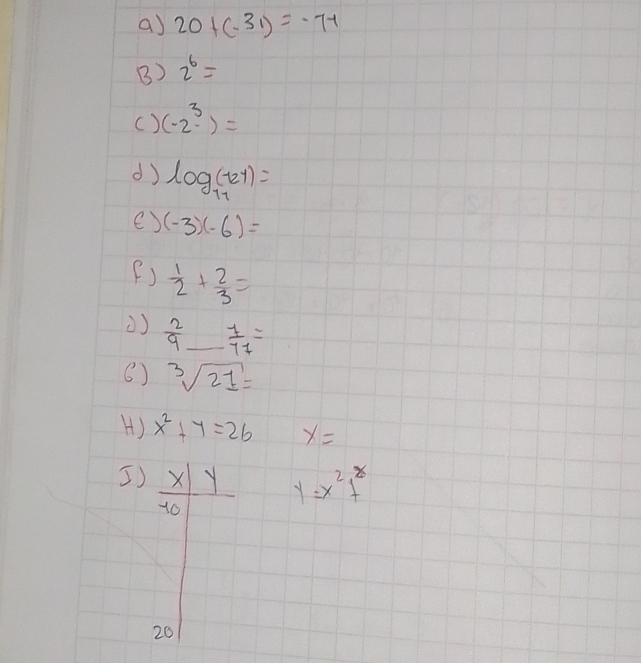 a) 20 + (-31) = -11
B) 2⁶ =
C) (-2³) =
d) log₁₁(121) =
E) (-3)(-6) =
f) 1/2 + 2/3 =
J) 2/9 — 1/11 =
G) ³√27 =
H) x² + 1 = 26 x =
I) x | y y = x²
10
20